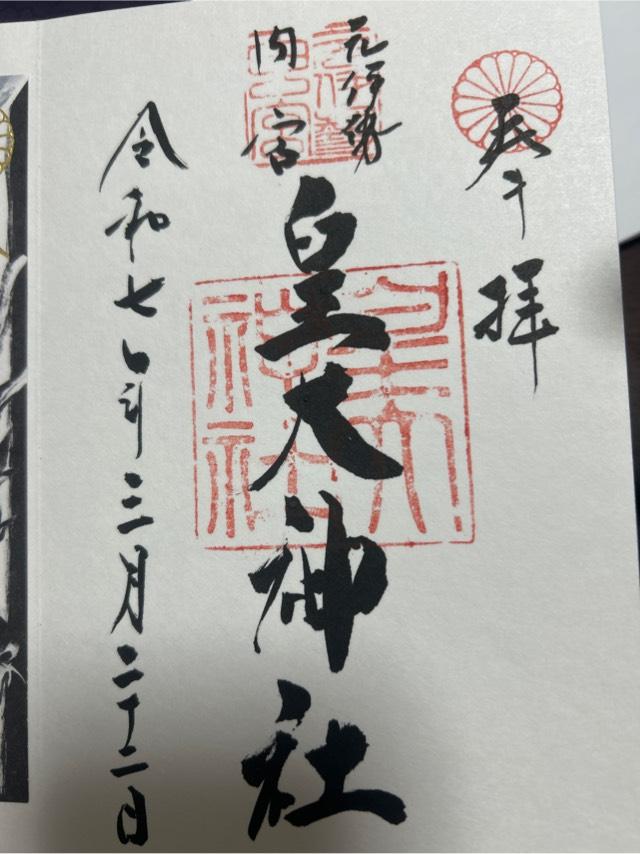 奉拝
元伊勢
内宮
皇大神社
令和七年三月二十二日
元伊勢
内宮
皇大
神社